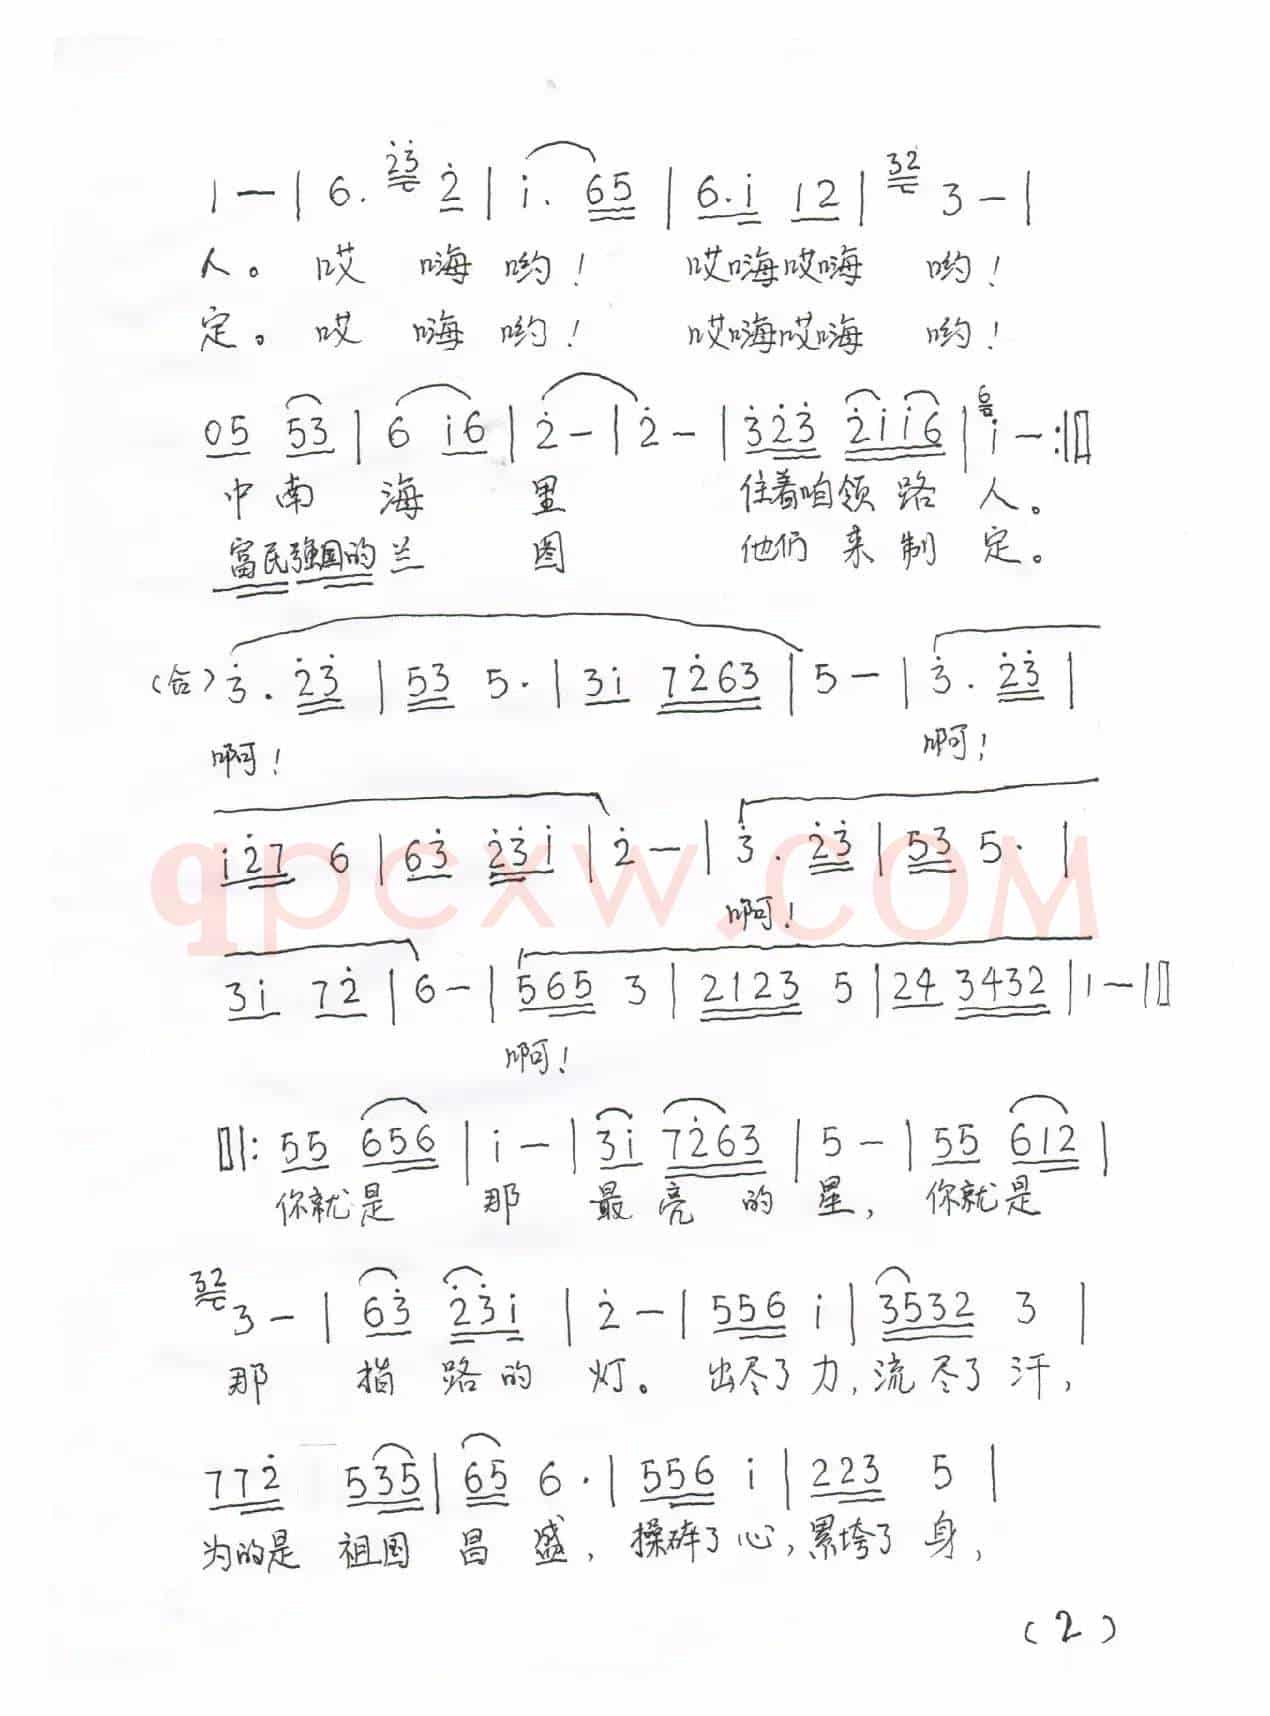 1 — | 6. 2̇3̇ 2̇ | i. 65 | 6.i 12 | 32 3 — |
人。哎 嗨 哟！ 哎嗨哎嗨 哟！
定。哎 嗨 哟！ 哎嗨哎嗨 哟！
05 53 | 6 i6 | 2̇ — | 2̇ — | 3̇2̇3̇ 2̇ii6 | 6 i — :||
中南海 里 住着咱领路人。
富民强国的兰 图 他们来制定。
(合) 3̇. 2̇3̇ | 53 5. | 3i 72̇63 | 5 — | 3̇. 2̇3̇ |
啊！ 啊！
i2̇7 6 | 63̇ 2̇3̇i | 2̇ — | 3̇. 2̇3̇ | 53 5. |
啊！
qpcxw.COM
3i 72̇ | 6 — | 565 3 | 2123 5 | 24 3432 | 1 — ||
啊！
||: 55 656 | i — | 3i 72̇63 | 5 — | 55 612 |
你就是 那 最亮的星，你就是
32 3 — | 63̇ 2̇3̇i | 2̇ — | 556 i | 3532 3 |
那 指路的 灯。出尽了力，流尽了汗，
772̇ 535 | 65 6. | 556 i | 223 5 |
为的是 祖国昌盛，操碎了心，累垮了身，
(2)